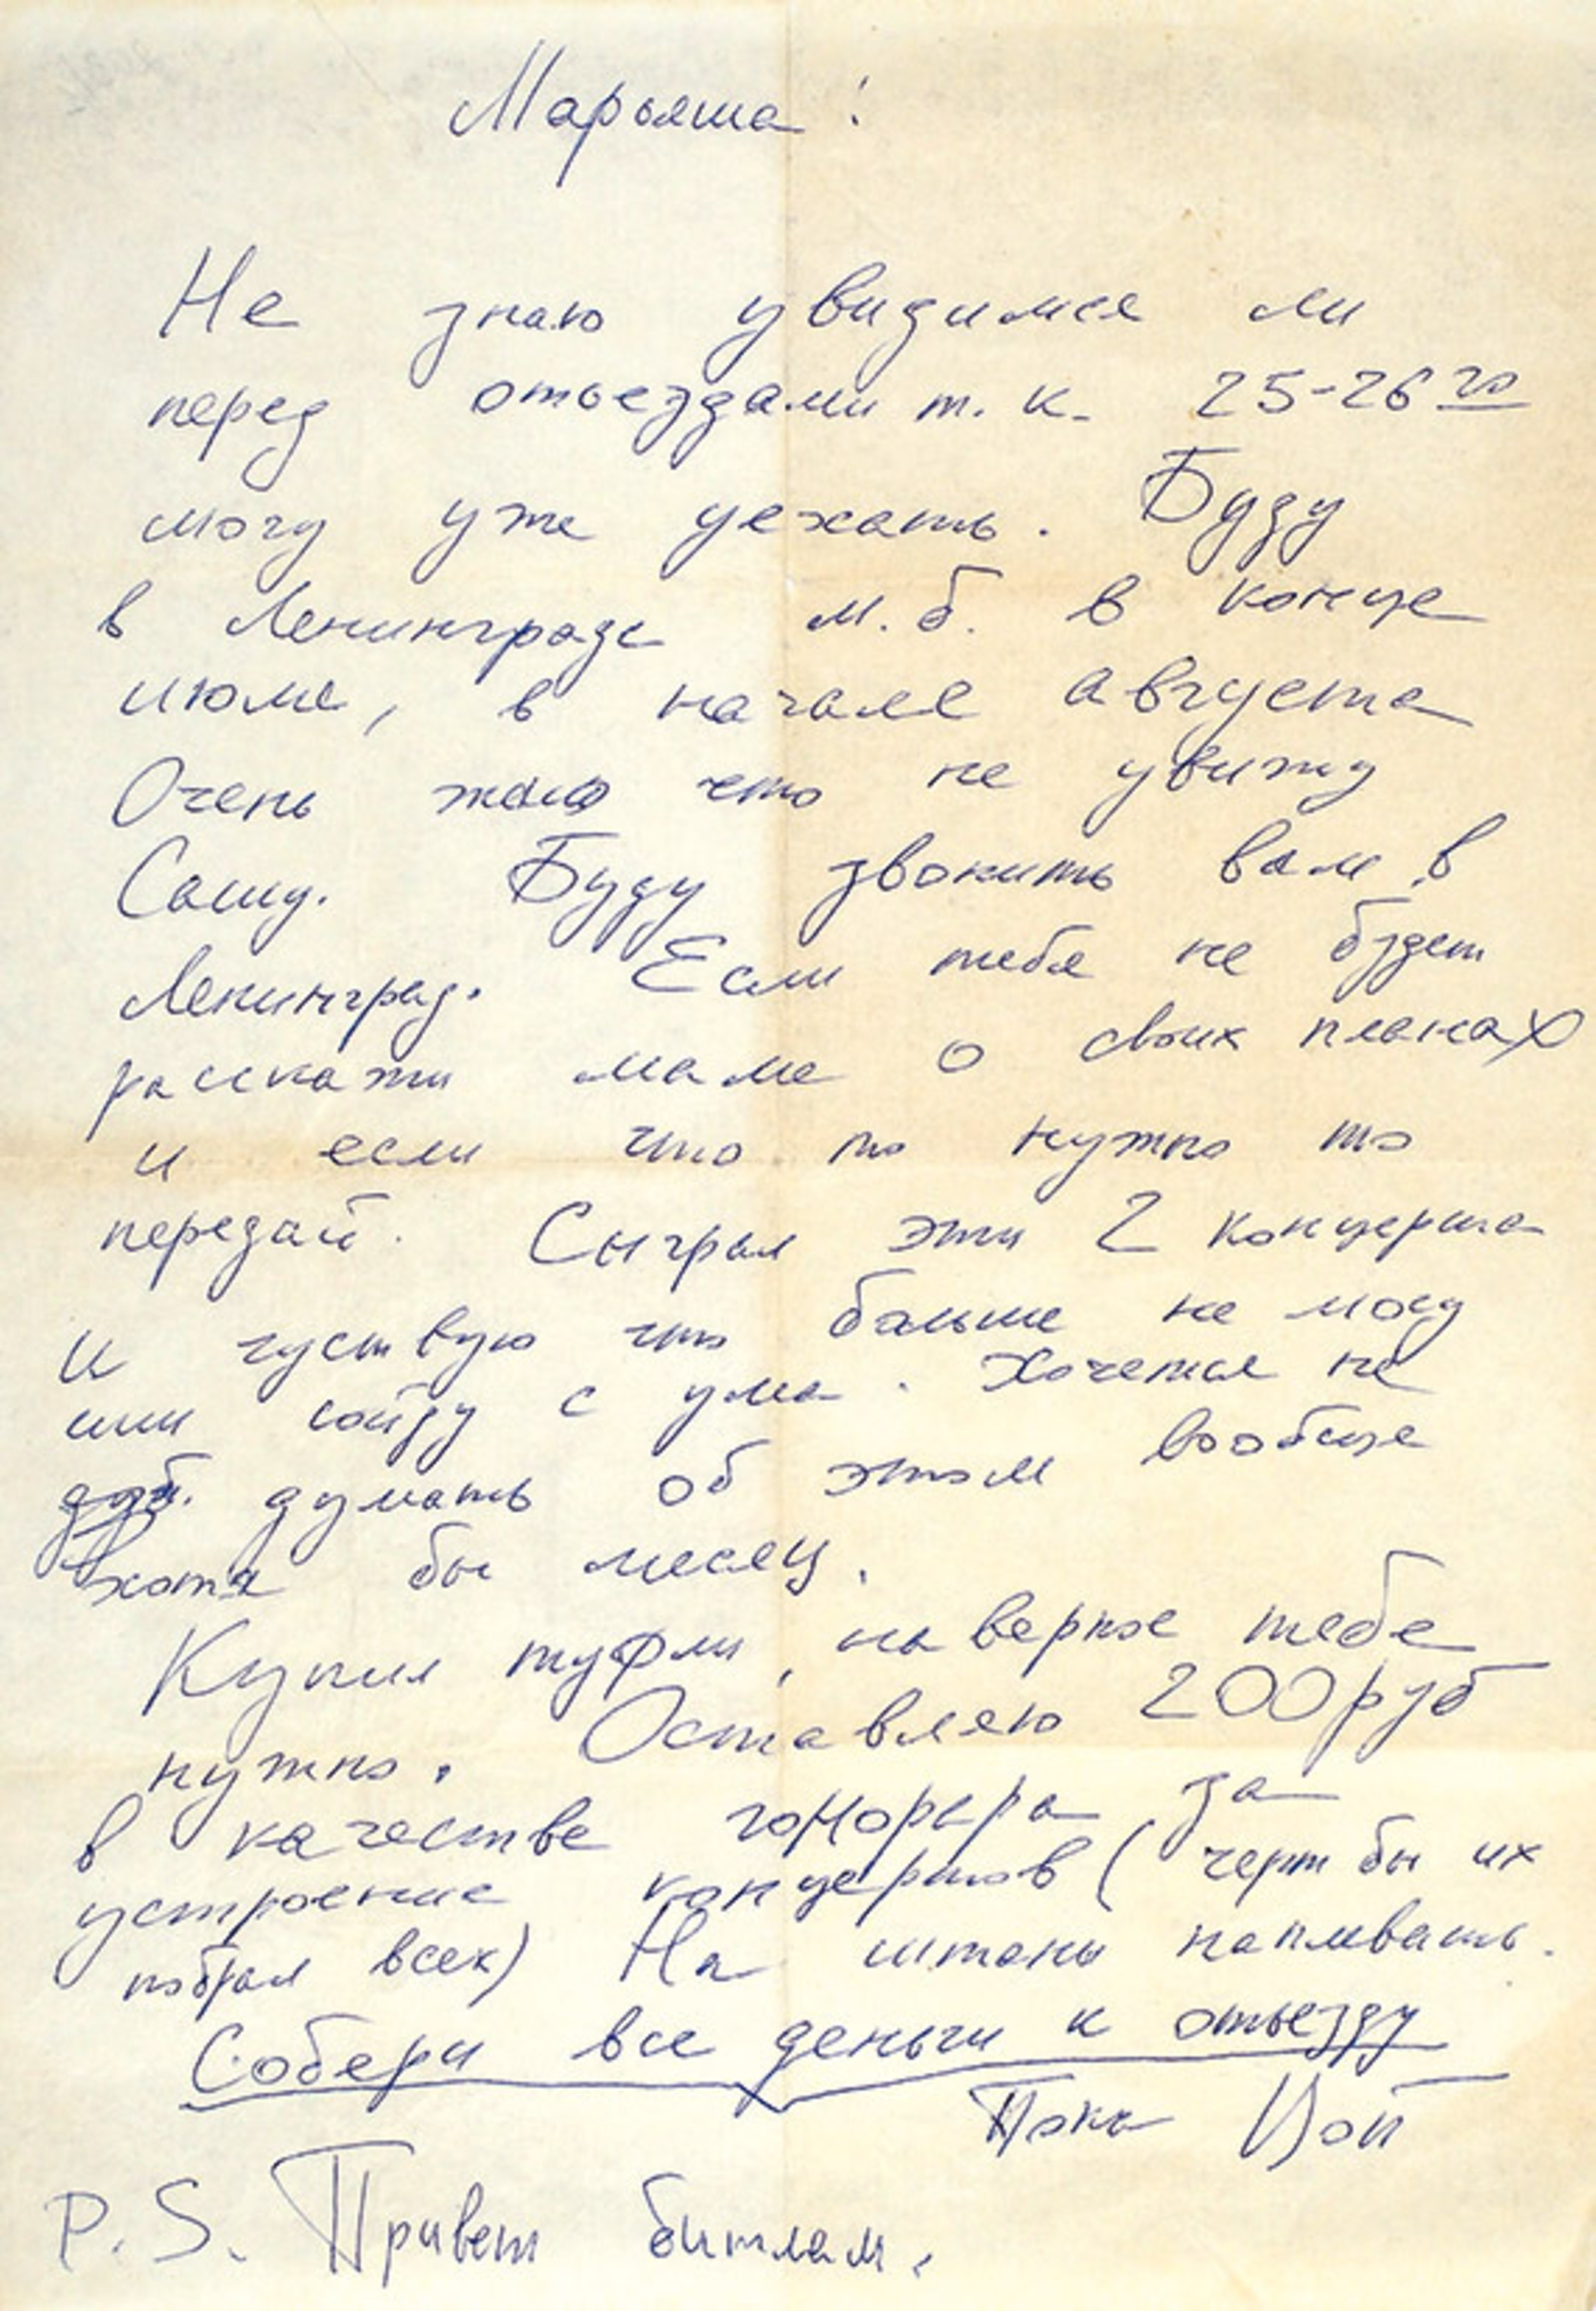 Марьяша!
Не знаю увидимся ли
перед отъездами т. к. 25-26 го
могу уже уехать. Буду
в Ленинграде м. б. в конце
июля, в начале августа
Очень жаль что не увижу
Сашу. Буду звонить вам в
Ленинград. Если тебя не будет
расскажи маме о своих планах
и если что то нужно то
передай. Сыграл эти 2 концерта
и чуствую что больше не могу
или сойду с ума. Хочется не
думать об этом вообще
хотя бы месяц.
Купил туфли, наверное тебе
нужно. Оставляю 200 руб
в качестве гонорара за
устроение концертов (черт бы их
побрал всех) На штаны наплевать.
Собери все деньги к отъезду
Пока Цой
P.S. Привет битлам.